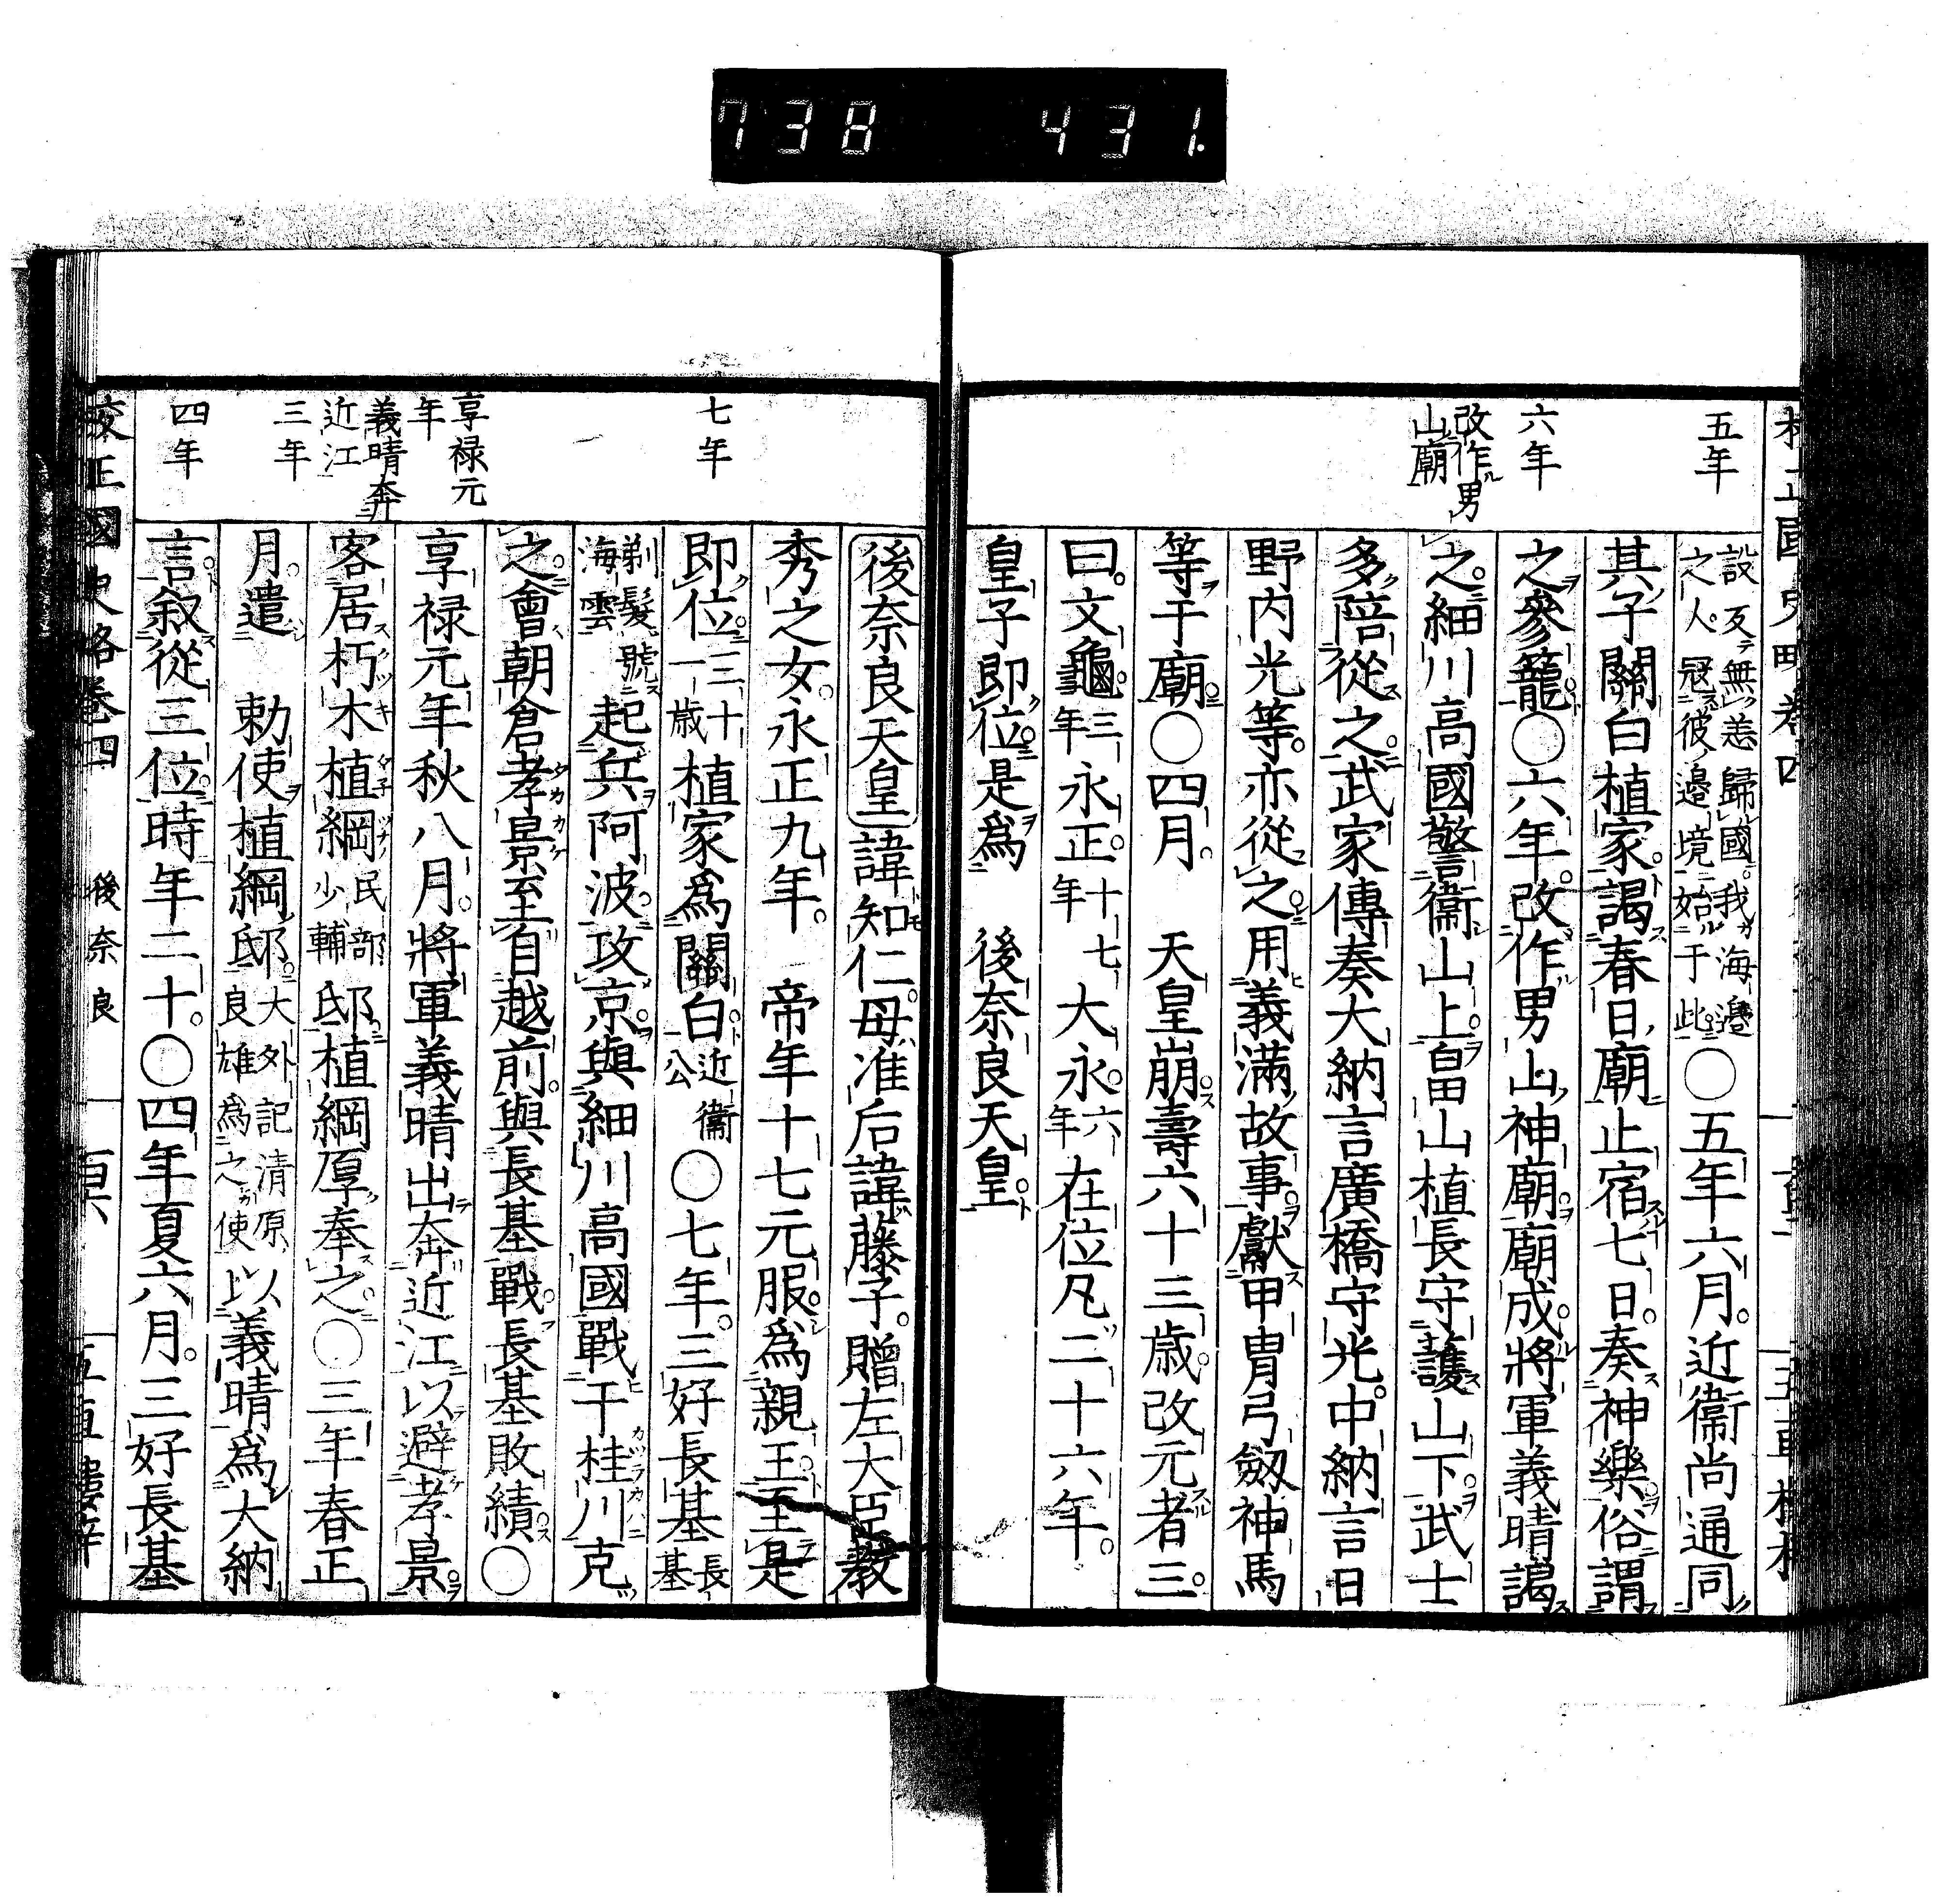 738 431.
五年
六年
改作男
山廟
設反無恙歸國我海邊
之人冠彼邊境始于此
○五年六月近衞尚通同
其子關白植家謁春日廟止宿七日奏神樂俗謂
之參籠○六年改作男山神廟廟成將軍義晴謁
之細川高國警衞山上畠山植長守護山下武士
多陪從之武家傳奏大納言廣橋守光中納言日
野内光等亦從之用義滿故事獻甲冑弓劔神馬
等于廟○四月 天皇崩壽六十三歳改元者三
曰文龜三年永正十七年大永六年在位凡二十六年
皇子即位是爲 後奈良天皇
七年
享禄元
年
義晴奔
近江
三年
四年
後奈良天皇諱知仁母准后諱藤子贈左大臣教
秀之女永正九年 帝年十七元服爲親王至是
即位三十一歳植家爲關白近衞公○七年三好長基長基
剃髮號海雲起兵阿波攻京與細川高國戰于桂川克
之會朝倉孝景至自越前與長基戰長基敗績○
享禄元年秋八月將軍義晴出奔近江以避孝景
客居朽木植綱民部少輔邸植綱厚奉之○三年春正
月遣 勅使植綱邸大外記清原良雄爲之使以義晴爲大納
言叙從三位時年二十○四年夏六月三好長基
校正國史略卷四 後奈良